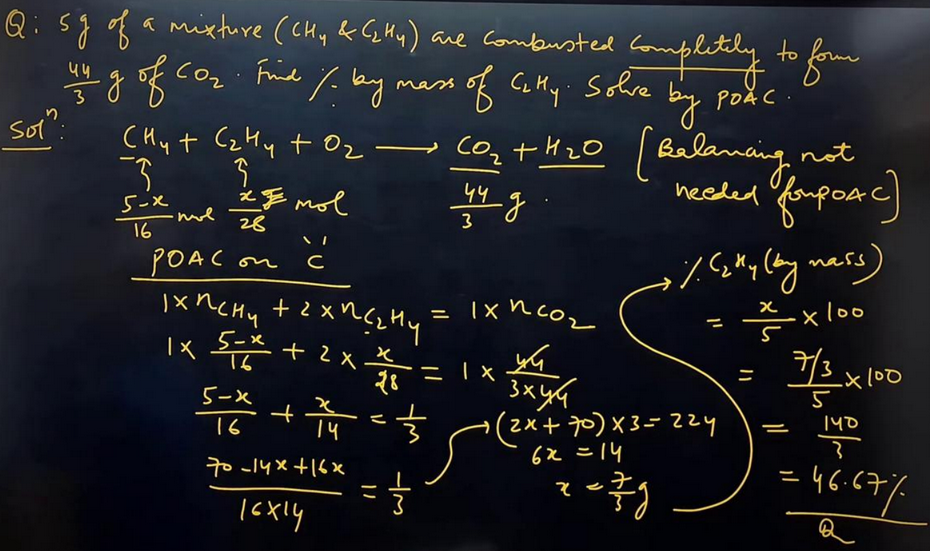 Q: 5g of a mixture (CH4 & C2H4) are combusted completely to form
44/3 g of CO2. Find % by mass of C2H4. Solve by POAC.
Solⁿ:
CH4 + C2H4 + O2 → CO2 + H2O [Balancing not
needed for POAC]
5-x/16 mol x/28 mol 44/3 g.
POAC on 'C'
1×nCH4 + 2×nC2H4 = 1×nCO2
1× 5-x/16 + 2× x/28 = 1× 44/3×44
5-x/16 + x/14 = 1/3
70-14x+16x/16×14 = 1/3
(2x+70)×3=224
6x = 14
x = 7/3 g
% C2H4 (by mass)
= x/5 ×100
= 7/3/5 ×100
= 140/3
= 46.67%